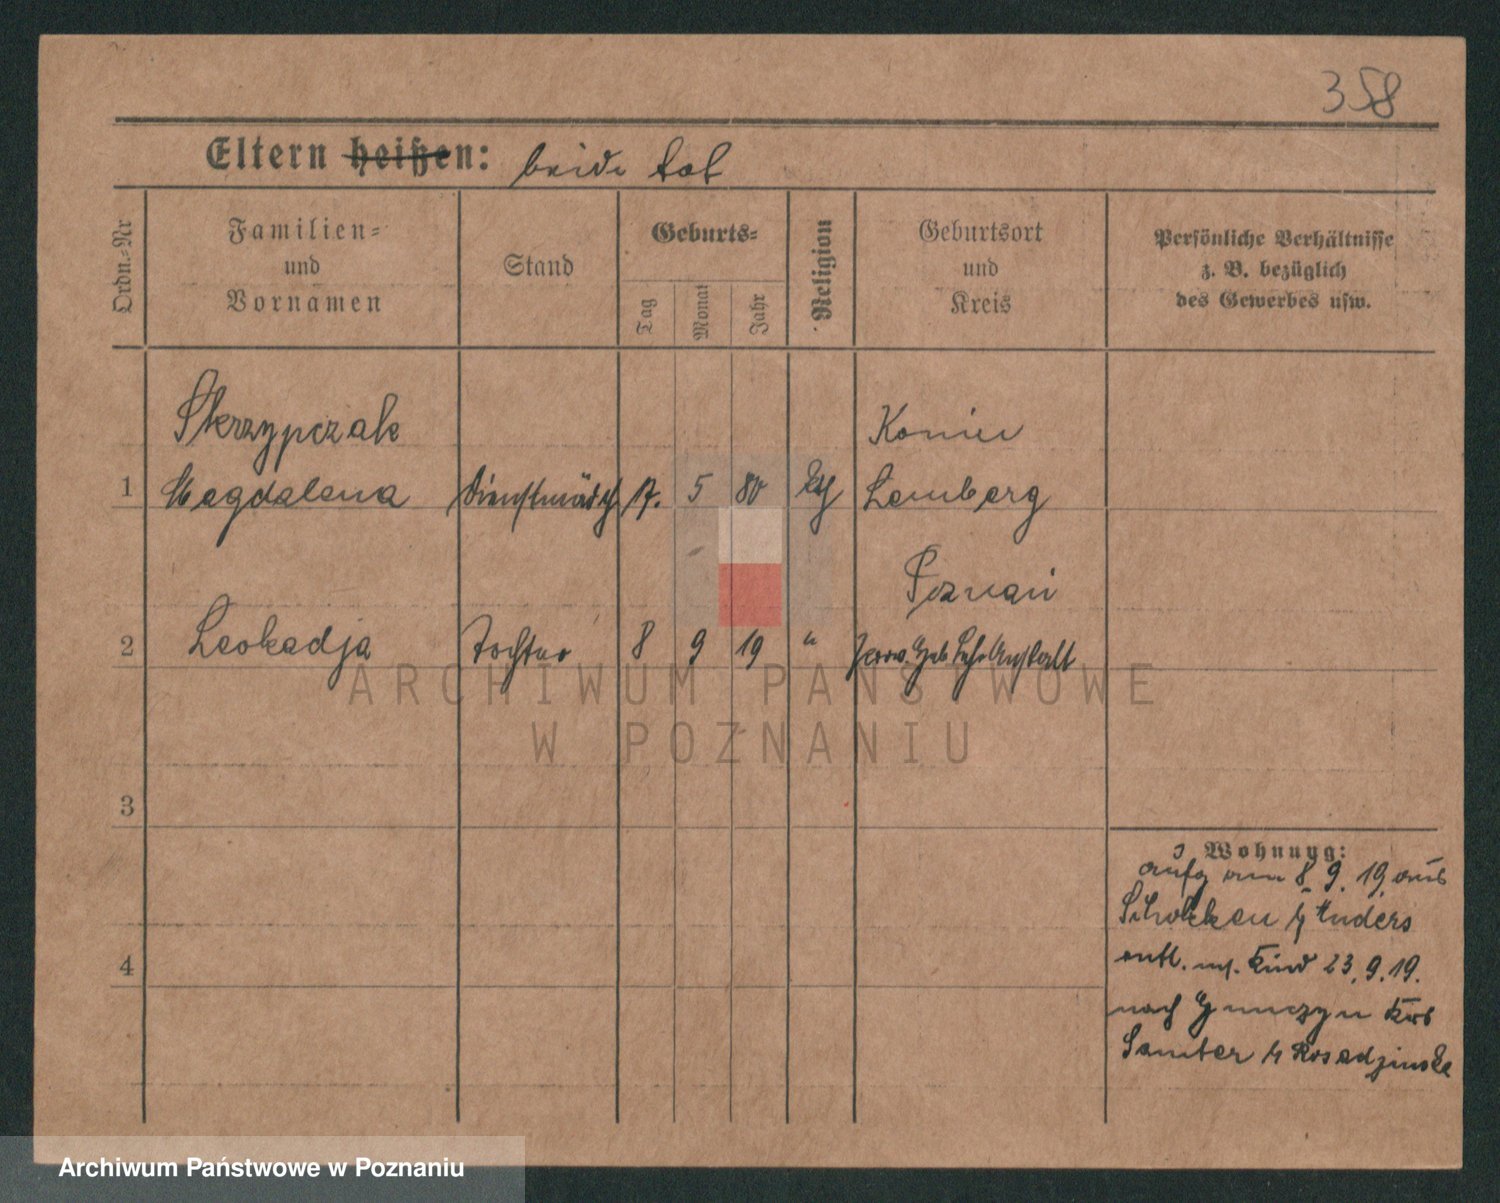 358
Eltern heißen: beide tot
Ordn.-Nr
Familien-
und
Vornamen
Stand
Geburts-
Tag
Monat
Jahr
Religion
Geburtsort
und
Kreis
Persönliche Verhältnisse
z. B. bezüglich
des Gewerbes usw.
Skrzypczak
1 Magdalena Dienstmädch 17. 5 80 kth Lemberg
Poznań
2 Leokadja Tochter 8 9 19 " Prov. Heb Lehr Anstalt
3
4
Wohnung:
aufg am 8. 9. 19 aus
Scholken b/ Enders
entl. m. Kind 23.9.19.
nach Krs
Samter b/
ARCHIWUM PAŃSTWOWE
W POZNANIU
Archiwum Państwowe w Poznaniu